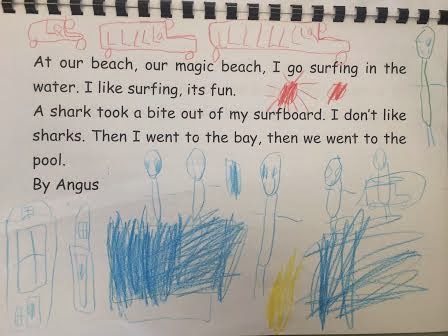 At our beach, our magic beach, I go surfing in the
water. I like surfing, its fun.
A shark took a bite out of my surfboard. I don't like
sharks. Then I went to the bay, then we went to the
pool.
By Angus